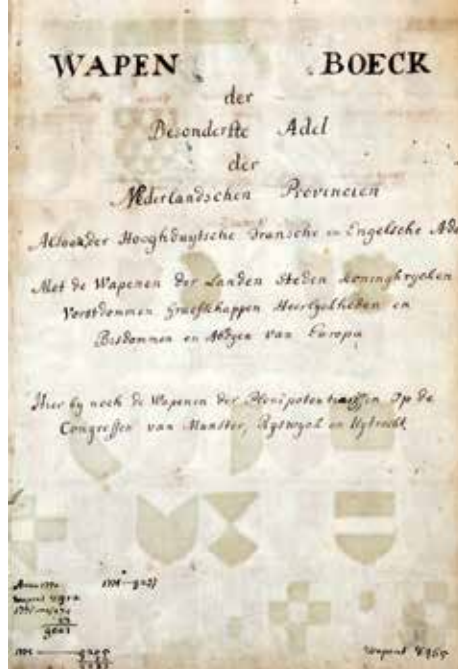 WAPEN BOECK
der
Besonderste Adel
der
Nederlandschen Provincien
Alsook der Hooghduytsche Fransche en Engelsche Ade
Met de Wapenen der Landen Steden Koninghrycken
Vorstdommen Graefschappen Heerlyckheden en
Bisdommen en Abdyen van Europa
Hier by noch de Wapenen der Plenipotentiarissen Op de
Congressen van Munster, Ryswyck en Uytrecht